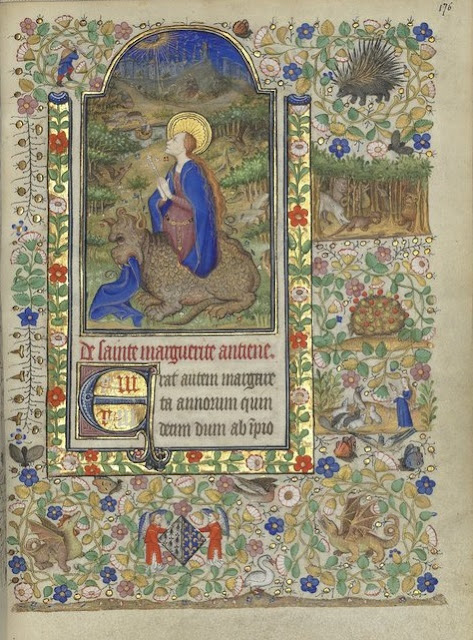 176
De sainte marguerite antiene.
Erat autem margare
ta annorum quin
decim dum ab īpio